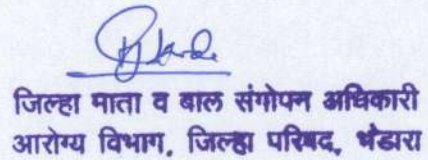 जिल्हा माता व बाल संगोपन अधिकारी
आरोग्य विभाग, जिल्हा परिषद, भंडारा